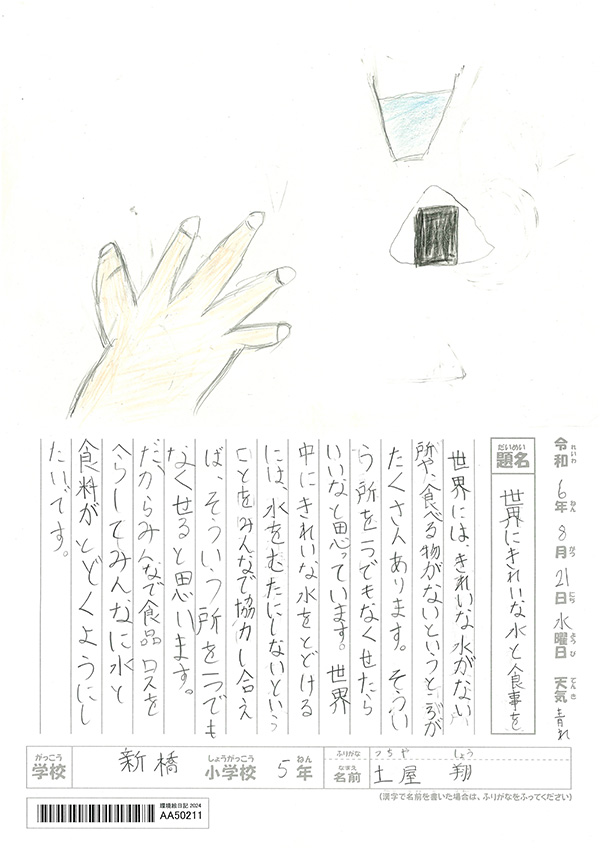 令和6年8月21日水曜日 天気晴れ
れいわ ねん がつ にち ようび てんき
だいめい
題名 世界にきれいな水と食事を
世界には、きれいな水がない
所や、食べる物がないという所が
たくさんあります。そうい
う所を一つでもなくせたら
いいなと思っています。世界
中にきれいな水をとどける
には、水をむだにしないという
ことをみんなで協力し合え
ば、そういう所を一つでも
なくせると思います。
だからみんなで食品ロスを
へらしてみんなに水と
食料がとどくようにし
たいです。
がっこう しょうがっこう ねん
学校 新橋 小学校 5年
ふりがな つちや しょう
なまえ
名前 土屋 翔
(漢字で名前を書いた場合は、ふりがなをふってください)
環境絵日記 2024
AA50211